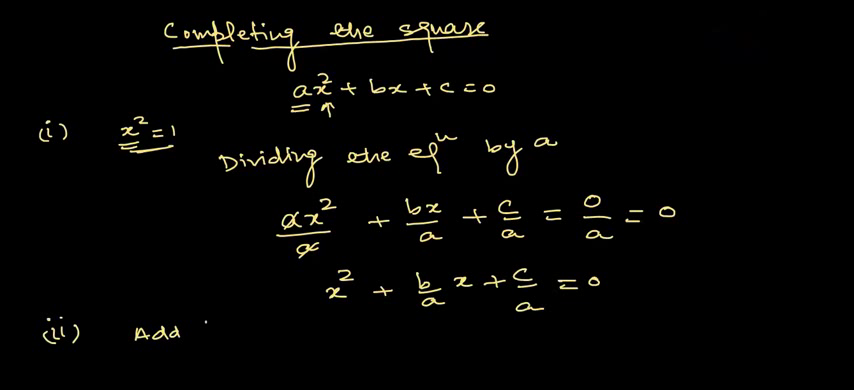 Completing the square
ax² + bx + c = 0
(i) x² = 1
Dividing the eqⁿ by a
ax²/a + bx/a + c/a = 0/a = 0
x² + b/a x + c/a = 0
(ii) Add